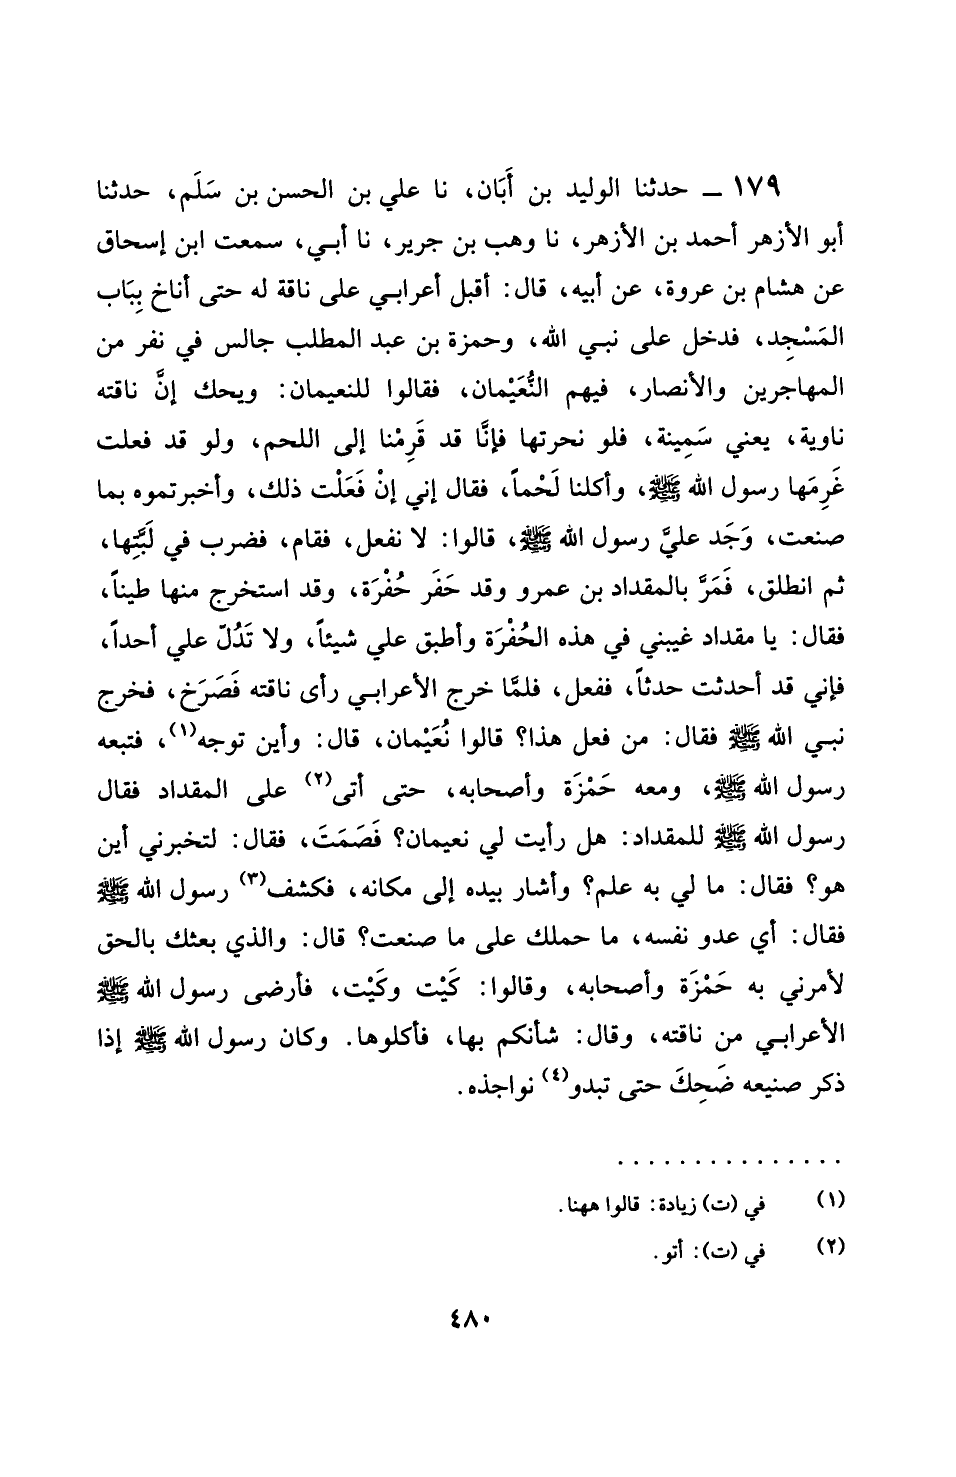 ١٧٩ ــ حدثنا الوليد بن أَبَان، نا علي بن الحسن بن سَلَم، حدثنا
أبو الأزهر أحمد بن الأزهر، نا وهب بن جرير، نا أبي، سمعت ابن إسحاق
عن هشام بن عروة، عن أبيه، قال: أقبل أعرابي على ناقة له حتى أناخ بِبَاب
المَسْجِد، فدخل على نبي الله، وحمزة بن عبد المطلب جالس في نفر من
المهاجرين والأنصار، فيهم النُّعَيْمان، فقالوا للنعيمان: ويحك إنَّ ناقته
ناوية، يعني سَمِينة، فلو نحرتها فإنَّا قد قَرِمْنا إلى اللحم، ولو قد فعلت
غَرِمَها رسول الله ﷺ، وأكلنا لَحْماً، فقال إني إنْ فَعَلْت ذلك، وأخبرتموه بما
صنعت، وَجَد عليَّ رسول الله ﷺ، قالوا: لا نفعل، فقام، فضرب في لَبَّتِها،
ثم انطلق، فَمَرَّ بالمقداد بن عمرو وقد حَفَر حُفْرَة، وقد استخرج منها طيناً،
فقال: يا مقداد غيبني في هذه الحُفْرَة وأطبق علي شيئاً، ولا تَدُلّ علي أحداً،
فإني قد أحدثت حدثاً، ففعل، فلمَّا خرج الأعرابي رأى ناقته فَصَرَخ، فخرج
نبي الله ﷺ فقال: من فعل هذا؟ قالوا نُعَيْمان، قال: وأين توجه(١)، فتبعه
رسول الله ﷺ، ومعه حَمْزَة وأصحابه، حتى أتى(٢) على المقداد فقال
رسول الله ﷺ للمقداد: هل رأيت لي نعيمان؟ فَصَمَتَ، فقال: لتخبرني أين
هو؟ فقال: ما لي به علم؟ وأشار بيده إلى مكانه، فكشف(٣) رسول الله ﷺ
فقال: أي عدو نفسه، ما حملك على ما صنعت؟ قال: والذي بعثك بالحق
لأمرني به حَمْزَة وأصحابه، وقالوا: كَيْت وكَيْت، فأرضى رسول الله ﷺ
الأعرابي من ناقته، وقال: شأنكم بها، فأكلوها. وكان رسول الله ﷺ إذا
ذكر صنيعه ضَحِكَ حتى تبدو(٤) نواجذه.
. . . . . . . . . . . . . . .
(١) في (ت) زيادة: قالوا ههنا.
(٢) في (ت): أتو.
٤٨٠